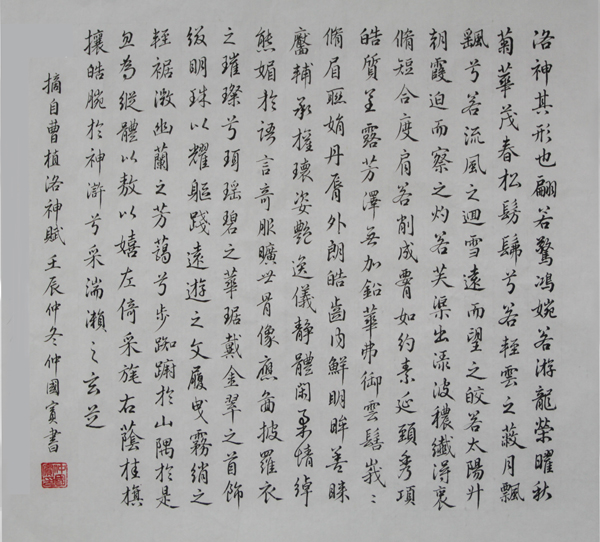 洛神其形也翩若驚鴻婉若游龍榮曜秋
菊華茂春松髣髴兮若輕雲之蔽月飄
飖兮若流風之迴雪遠而望之皎若太陽升
朝霞迫而察之灼若芙渠出渌波穠纖得衷
脩短合度肩若削成腰如約素延頸秀項
皓質呈露芳澤無加鉛華弗御雲髻峩〻
脩眉聯娟丹脣外朗皓齒内鮮明眸善睞
靨輔承權瓌姿艷逸儀靜體閑柔情綽
態媚於語言奇服曠世骨像應畵披羅衣
之璀璨兮珥瑶碧之華琚戴金翠之首飾
綴明珠以耀軀踐遠遊之文履曳霧綃之
輕裾微幽蘭之芳藹兮步踟躕於山隅於是
忽為縱體以敖以嬉左倚采旄右蔭桂旗
攘皓腕於神滸兮采湍瀨之玄芝
摘自曹植洛神賦壬辰仲冬仲國賓書